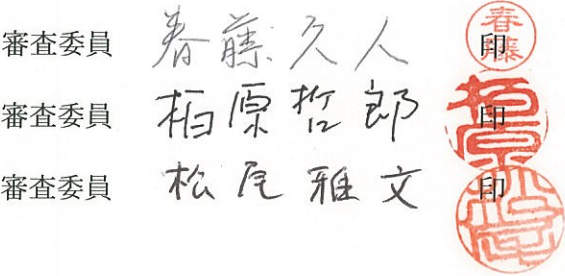 審査委員 春藤久人 印 春藤
審査委員 柏原哲郎 印 柏原
審査委員 松尾雅文 印